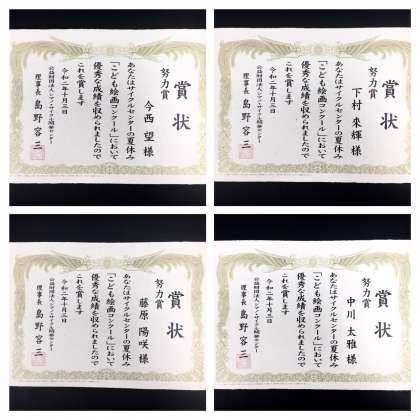 賞状
努力賞
今西 望 様
あなたはサイクルセンターの夏休み
「こども絵画コンクール」において
優秀な成績を収められましたので
これを賞します
令和二年十月三日
公益財団法人シマノ・サイクル開発センター
理事長 島野容三
賞状
努力賞
下村 來輝 様
あなたはサイクルセンターの夏休み
「こども絵画コンクール」において
優秀な成績を収められましたので
これを賞します
令和二年十月三日
公益財団法人シマノ・サイクル開発センター
理事長 島野容三
賞状
努力賞
藤原 陽咲 様
あなたはサイクルセンターの夏休み
「こども絵画コンクール」において
優秀な成績を収められましたので
これを賞します
令和二年十月三日
公益財団法人シマノ・サイクル開発センター
理事長 島野容三
賞状
努力賞
中川 太雅 様
あなたはサイクルセンターの夏休み
「こども絵画コンクール」において
優秀な成績を収められましたので
これを賞します
令和二年十月三日
公益財団法人シマノ・サイクル開発センター
理事長 島野容三